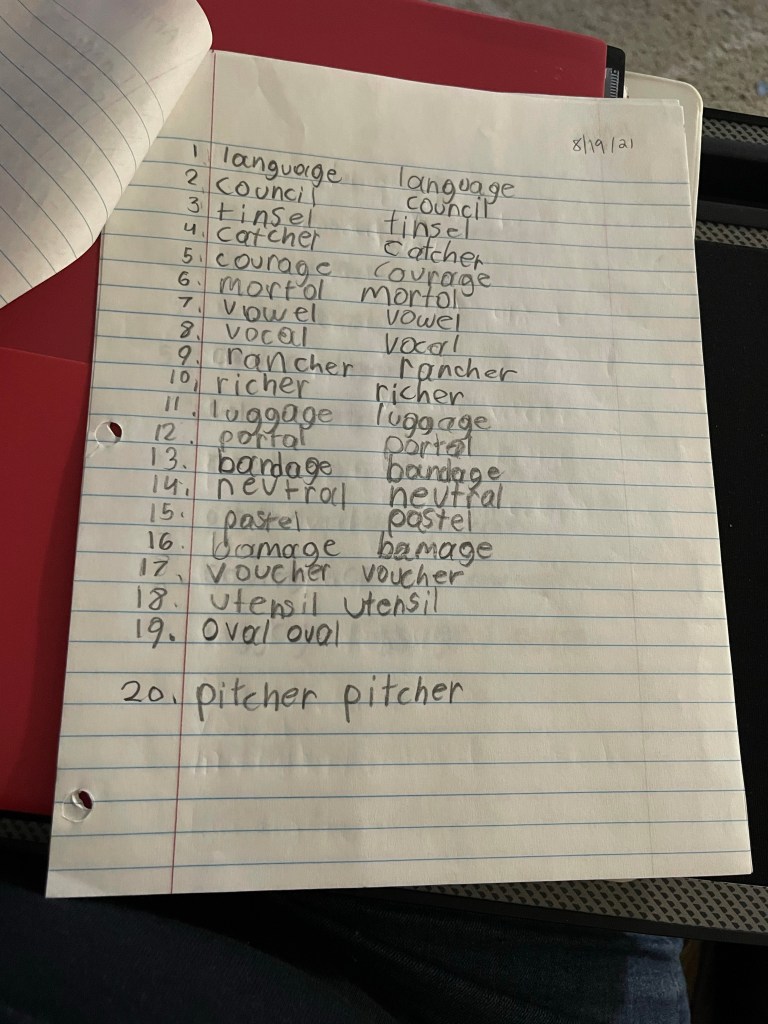 8/19/21
1. language language
2. council council
3. tinsel tinsel
4. catcher catcher
5. courage courage
6. mortal mortal
7. vowel vowel
8. vocal vocal
9. rancher rancher
10. richer richer
11. luggage luggage
12. portal portal
13. bandage bandage
14. neutral neutral
15. pastel pastel
16. bamage bamage
17. voucher voucher
18. utensil utensil
19. oval oval
20. pitcher pitcher